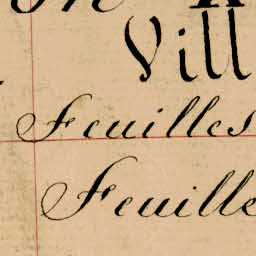 Vill
Feuilles
Feuille